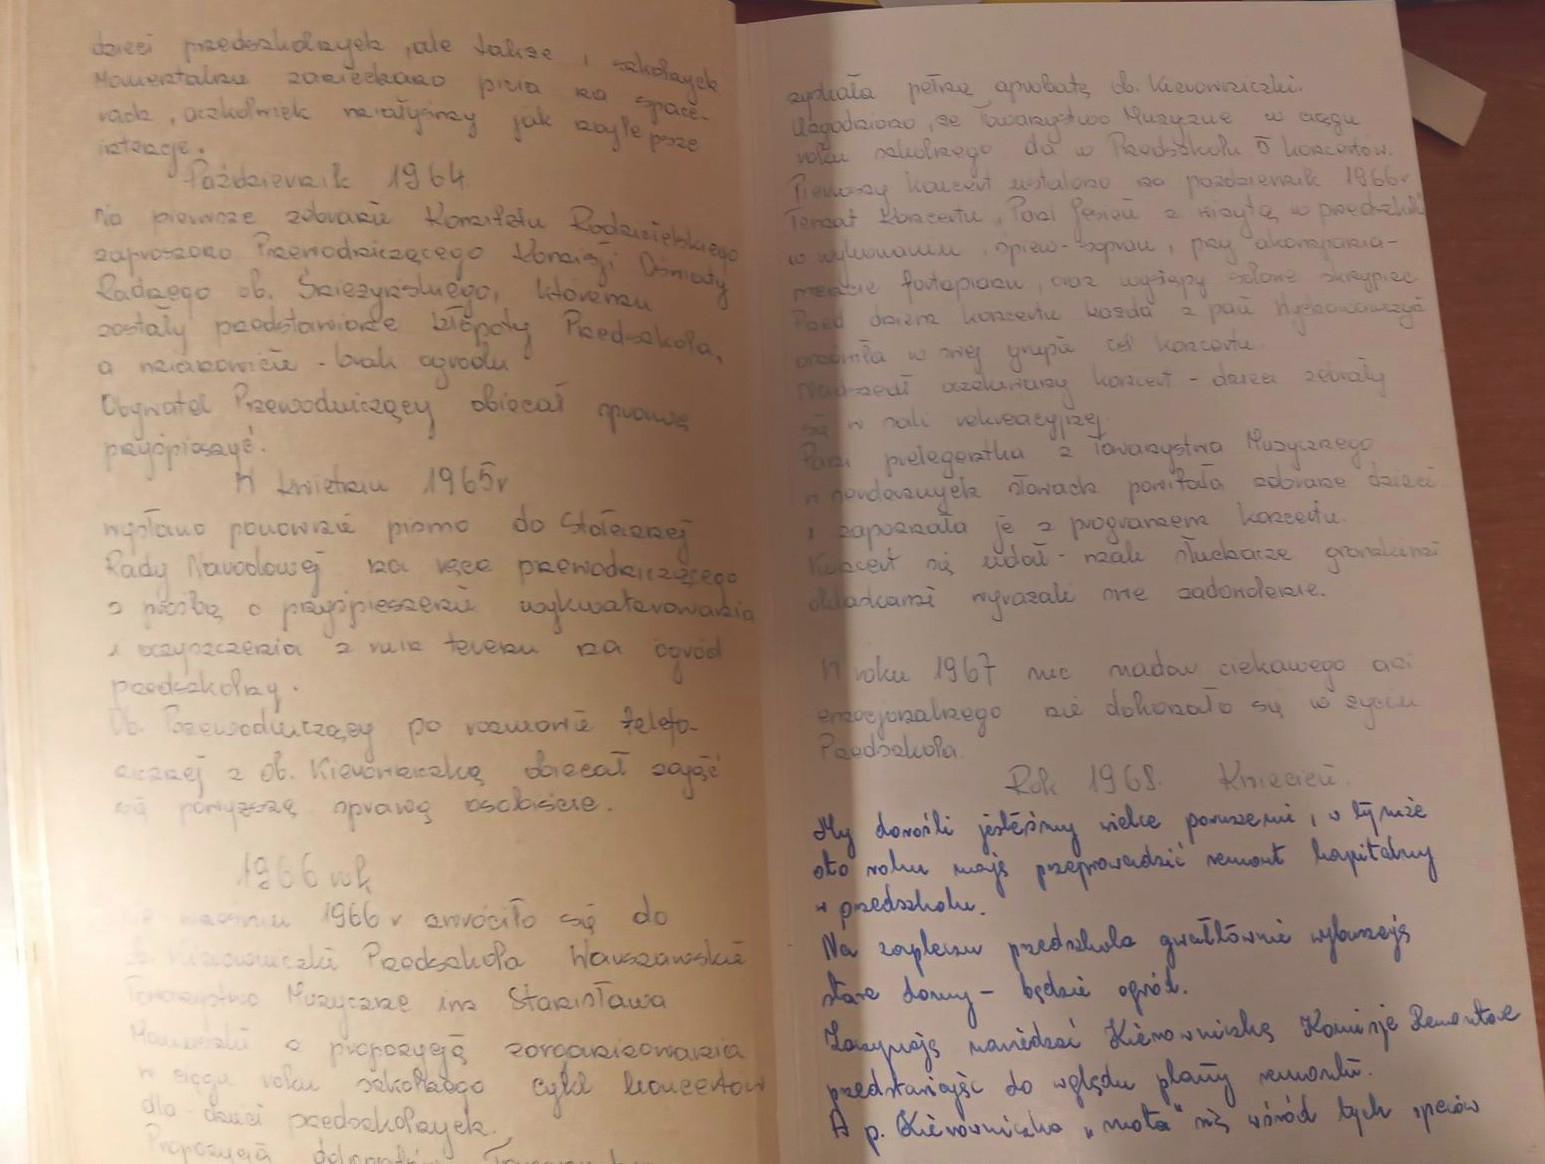 dzieci przedszkolnych, ale także i szkolnych
Momentalnie zaniechano picia na space-
rach, aczkolwiek miałyśmy jak najlepsze
intencje.
Październik 1964
Na pierwsze zebranie Komitetu Rodzicielskiego
zaproszono Przewodniczącego Komisji Oświaty
Radnego ob. któremu
zostały przedstawione kłopoty Przedszkola,
a mianowicie - brak ogrodu
Obywatel Przewodniczący obiecał sprawę
przyśpieszyć.
W kwietniu 1965r
wysłano ponownie pismo do Stołecznej
Rady Narodowej na ręce przewodniczącego
z prośbą o przyśpieszenie wykwaterowania
i oczyszczenia z ruin terenu na ogród
przedszkolny.
Ob. Przewodniczący po rozmowie telefo-
nicznej z Ob. Kierowniczką obiecał zająć
się powyższą sprawą osobiście.
1966 rok
We wrześniu 1966r zwróciło się do
ob. Kierowniczki Przedszkola Warszawskie
Towarzystwo Muzyczne im Stanisława
Moniuszki z propozycją zorganizowania
w ciągu roku szkolnego cykl koncertów
dla dzieci przedszkolnych.
Propozycja
zyskała pełną aprobatę ob. Kierowniczki.
Uzgodniono, że Towarzystwo Muzyczne w ciągu
roku szkolnego da w Przedszkolu 5 koncertów.
Pierwszy koncert ustalono na październik 1966r
Temat koncertu „Pani Jesień z wizytą w przedszkolu
w wykonaniu, śpiew-sopran, przy akompania-
mencie fortepianu, oraz występy solowe skrzypiec
Przed dniem koncertu każda z pań Wychowawczyń
omówiła w swej grupie cel koncertu.
Nadszedł oczekiwany koncert - dzieci zebrały
się w sali rekreacyjnej.
Pani prelegentka z Towarzystwa Muzycznego
w serdecznych słowach powitała zebrane dzieci
i zapoznała je z programem koncertu.
Koncert się udał - mali słuchacze gromkimi
oklaskami wyrażali swe zadowolenie.
W roku 1967 nic nadzw ciekawego ani
emocjonalnego nie dokonało się w życiu
Przedszkola.
Rok 1968. Kwiecień.
My dorośli jesteśmy wielce poruszeni, w tymże
oto roku mają przeprowadzić remont kapitalny
w przedszkolu.
Na zapleczu przedszkola gwałtownie wyburzają
stare domy - będzie ogród.
Zaczynają nawiedzać Kierowniczkę Komisje Remontowe
przedstawiając do wglądu plany remontu.
A p. Kierowniczka „miota" się wśród tych speców